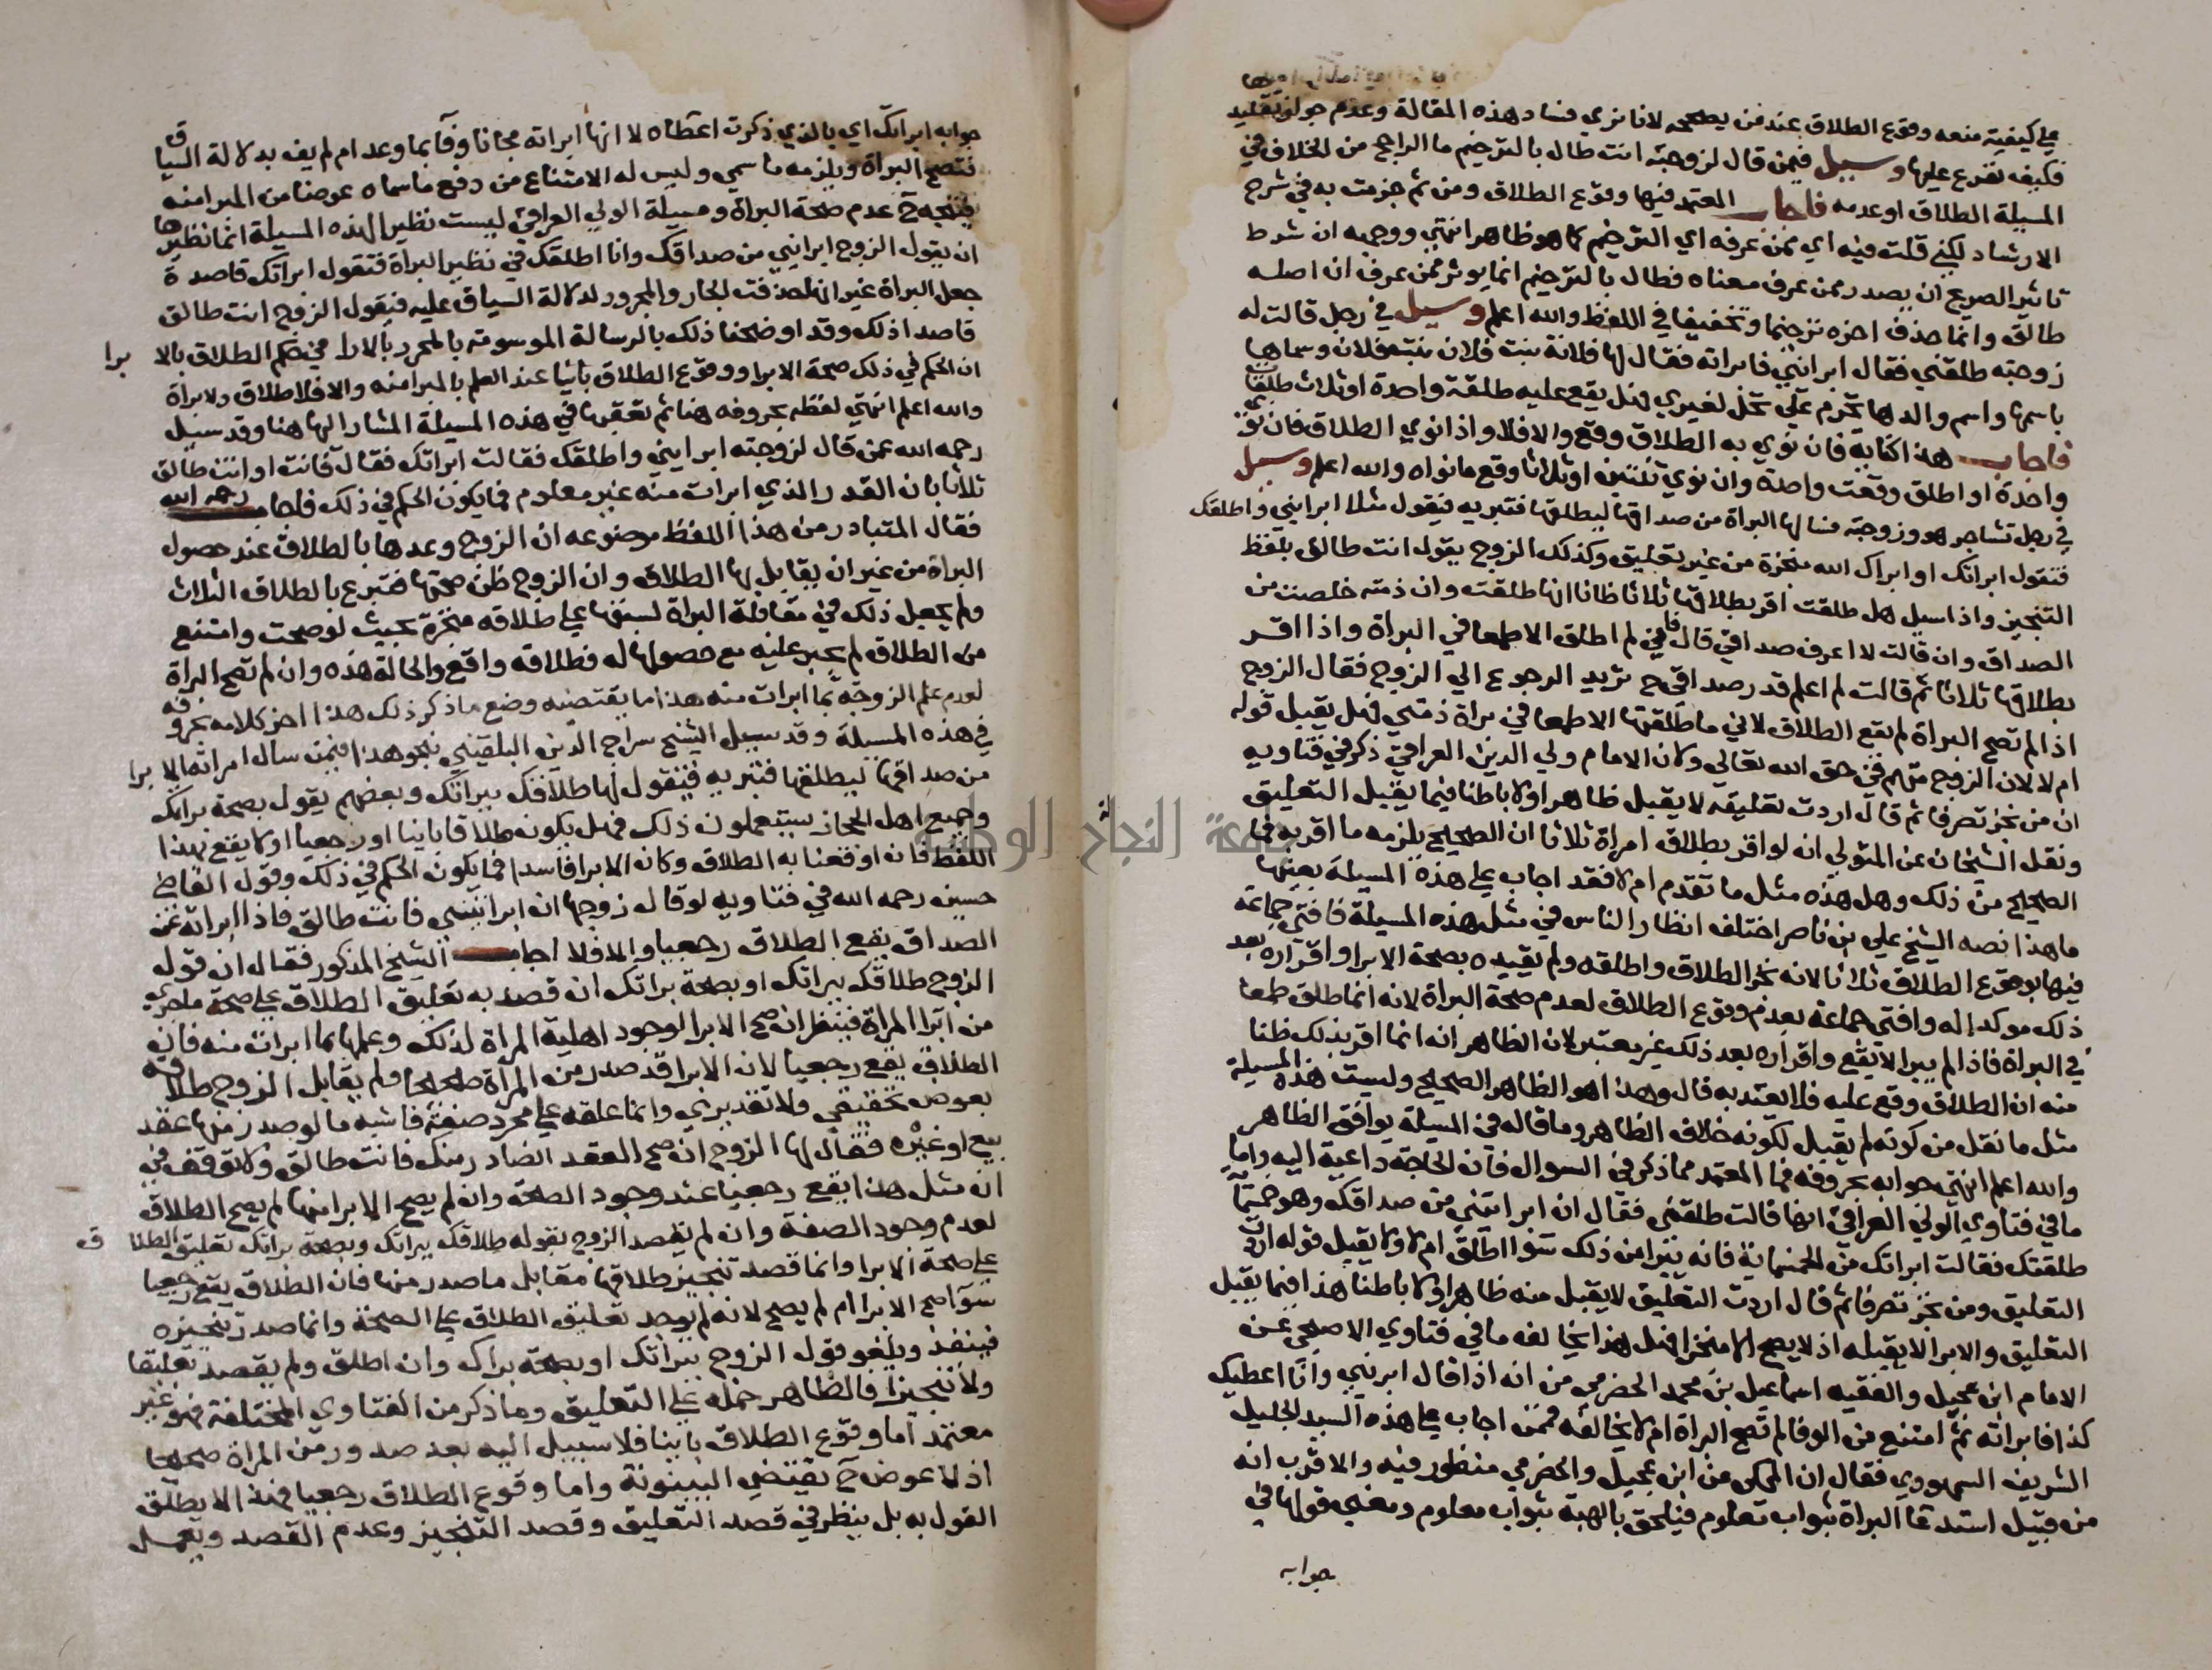 علي كيفية منعه وقوع الطلاق عند من يصححه لانا نري فساد هذه المقالة وعدم جواز تقليد
فكيف نفرع عليها وسيل فيمن قال لزوجته انت طال بالترخيم ما الراجح من الخلاف في
المسيلة الطلاق او عدمه فاجاب المعتمد فيها وقوع الطلاق ومن ثم جزمت به في شرح
الارشاد لكني قلت فيه اي ممن عرفه اي الترخيم كما هو ظاهر انتهي ووجهه ان شرط
تاثير الصريح ان يصدر ممن عرف معناه فطال بالترخيم انما يوثر ممن عرف ان اصله
طالق وانما حذف اخره ترخيما وتخفيفا في اللفظ والله اعلم وسيل في رجل قالت له
زوجته طلقني فقال ابرائيني فابراته فقال لها فلانة بنت فلان بنت فلان وسماها
باسمها واسم والدها تحرم علي تحل لغيري فهل يقع عليه طلقة واحدة او ثلاث طلقات
فاجاب هذا كناية فان نوي به الطلاق وقع والا فلا واذا نوي الطلاق فان نوي
واحدة او اطلق وقعت واحدة وان نوي ثنتين او ثلاثا وقع ما نواه والله اعلم وسيل
في رجل تشاجر هو وزوجته فسالها البراة من صداقها ليطلقها فتبريه فيقول مثلا ابرايني واطلقك
فتقول ابراتك او ابراك الله منجزة من غير تعليق وكذلك الزوج يقول انت طالق بلفظ
التنجيز واذا سيل هل طلقت اقر بطلاقها ثلاثا ظانا انها طلقت وان ذمته خلصت من
الصداق وان قالت لا اعرف صداقي قال لم اطلق الا طمعا في البراة واذا اقر
بطلاقها ثلاثا ثم قالت لم اعلم قدر صداقي ح تريد الرجوع الي الزوج فقال الزوج
اذا لم تصح البراة لم يقع الطلاق لاني ما طلقتها الا طمعا في براة ذمتي فهل يقبل قوله
ام لا لان الزوج متهم في حق الله تعالي وكان الامام ولي الدين العراقي ذكر في فتاويه
ان من نجز تصرفا ثم قال اردت تعليقه لا يقبل ظاهرا ولا باطنا فيما يقبل التعليق
ونقل الشيخان عن المتولي انه لو اقر بطلاق امراة ثلاثا ان الصحيح يلزمه ما اقر به فما
الصحيح من ذلك وهل هذه مثل ما تقدم ام لا فقد اجاب علي هذه المسيلة بعينها
ما هذا نصه الشيخ علي بن ناصر اختلف انظار الناس في مثل هذه المسيلة فافتي جماعة
فيها بوقوع الطلاق ثلاثا لانه نجز الطلاق واطلقه ولم يقيده بصحة الابرا واقراره بعد
ذلك موكدا له وافتي جماعة بعدم وقوع الطلاق لعدم صحة البراة لانه انما طلق طمعا
في البراة فاذا لم يبرا لا يقع واقراره بعد ذلك غير معتبر لان الظاهر انه انما اقر بذلك ظنا
منه ان الطلاق وقع عليه فلا يعتد به قال وهذا هو الظاهر الصحيح وليست هذه المسيلة
مثل ما نقل من كونه لم يقبل لكونه خلاف الظاهر وما قاله في المسيلة يوافق الظاهر
والله اعلم انتهي جوابه بحروفه فما المعتمد مما ذكر في السوال فان الحاجة داعية اليه واما
ما في فتاوي الولي العراقي انها قالت طلقني فقال ان ابراتيني من صداقك وهو خمسماية
طلقتك فقالت ابراتك من الخمسماية فانه يبرا من ذلك سوا اطلق ام لا ولا يقبل قوله اردت
التعليق ومن نجز تصرفا ثم قال اردت التعليق لا يقبل منه ظاهرا ولا باطنا هذا فيما يقبل
التعليق والابرا لا يقبله اذ لا يصح الا منجزا فهل هذا يخالفه ما في فتاوي الاصبحي عن
الامام ابن عجيل والفقيه اسماعيل بن محمد الحضرمي من انه اذا قال ابريني وانا اعطيك
كذا فابراته ثم امتنع من الوفا لم تصح البراة ام لا يخالفه فممن اجاب علي هذه السيد الجليل
الشريف السمهودي فقال ان المحكي عن ابن عجيل والحضرمي منظور فيه والاقرب انه
من قبيل استدعا البراة بثواب معلوم فيلحق بالهبة بثواب معلوم ومعني قولها في
جوابه
جوابه ابراتك اي بالذي ذكرت اعطاه لا انها ابراته مجانا وقايما وعدام لم يف بدلالة السياق
فتصح البراة ويلزمه ما سمي وليس له الامتناع من دفع ما سماه عوضا من المبرا منه
فيتجه ح عدم صحة البراة ومسيلة الولي العراقي ليست نظير هذه المسيلة انما نظيرها
ان يقول الزوج ابرايني من صداقك وانا اطلقك في نظير البراة فتقول ابراتك قاصدة
جعل البراة غير انها حذفت الجار والمجرور لدلالة السياق عليه فيقول الزوج انت طالق
قاصدا ذلك وقد اوضحنا ذلك بالرسالة الموسومة بالمحرر بالارا في حكم الطلاق بالابرا
ان الحكم في ذلك صحة الابرا ووقوع الطلاق باينا عند العلم بالمبرا منه والا فلا طلاق ولا براة
والله اعلم انتهي لفظه بحروفه هنا ثم تعقبها في هذه المسيلة المشار اليها هنا وقد سيل
رحمه الله عمن قال لزوجته ابرايني واطلقك فقالت ابراتك فقال فانت او انت طالق
ثلاثا بان القدر الذي ابرات منه غير معلوم فما يكون الحكم في ذلك فاجاب رحمه الله
فقال المتبادر من هذا اللفظ موضوعه ان الزوج وعدها بالطلاق عند حصول
البراة من غير ان يقابل بها الطلاق وان الزوج ظن صحتها فتبرع بالطلاق الثلاث
ولم يجعل ذلك في مقابلة البراة لسبقها علي طلاقه منجزة بحيث لو صحت وامتنع
من الطلاق لم يجبر عليه مع حصولها له فطلاقه واقع والحالة هذه وان لم تصح البراة
لعدم علم الزوجة بما ابرات منه هذا ما يقتضيه وضع ما ذكر ذلك هذا اخر كلامه بحروفه
في هذه المسيلة وقد سيل الشيخ سراج الدين البلقيني بنحو هذا فيمن سال امراته الابرا
من صداقها ليطلقها فتبريه فيقول لها طلاقك ببراتك وبعضهم يقول بصحة براتك
وجميع اهل الحجاز يستعملون ذلك فهل يكون طلاقا باينا او رجعيا او لا يقع بهذا
اللفظ فان اوقعنا به الطلاق وكان الابرا فاسدا فما يكون الحكم في ذلك وقول القاضي
حسين رحمه الله في فتاويه لو قال زوجها ان ابراتيني فانت طالق فاذا ابراته عن
الصداق يقع الطلاق رجعيا والا فلا اجاب الشيخ المذكور فقال ان قول
الزوج طلاقك ببراتك او بصحة براتك ان قصد به تعليق الطلاق علي صحة ما جري
من ابرا المراة فينظر ان صح الابرا لوجود اهلية المراة لذلك وعلمها بما ابرات منه فان
الطلاق يقع رجعيا لان الابرا قد صدر من المراة صحيحا ولم يقابل الزوج طلاقه
بعوض تحقيقي ولا تقديري وانما علقه علي مجرد صفة فاشبه ما لو صدر منها عقد
بيع او غيره فقال لها الزوج ان صح العقد الصادر منك فانت طالق ولا توقف في
ان مثل هذا يقع رجعيا عند وجود الصحة وان لم يصح الابرا منها لم يصح الطلاق
لعدم وجود الصفة وان لم يقصد الزوج بقوله طلاقك ببراتك وبصحة براتك تعليق الطلاق
علي صحة الابرا وانما قصد تنجيز طلاقها مقابل ما صدر منها فان الطلاق يقع رجعيا
سوا صح الابرا ام لم يصح لانه لم يوجد تعليق الطلاق علي الصحة وانما صدر تنجيزه
فينفذ ويلغو قول الزوج ببراتك او بصحة براك وان اطلق ولم يقصد تعليقا
ولا تنجيزا فالظاهر حمله علي التعليق وما ذكر من الفتاوي المختلفة فهو غير
معتمد اما وقوع الطلاق باينا فلا سبيل اليه بعد صدور من المراة صحيحا
اذ لا عوض ح يقتضي البينونة واما وقوع الطلاق رجعيا فهذا لا يطلق
القول به بل ينظر في قصد التعليق وقصد التنجيز وعدم القصد ويعمل
جامعة النجاح الوطنية